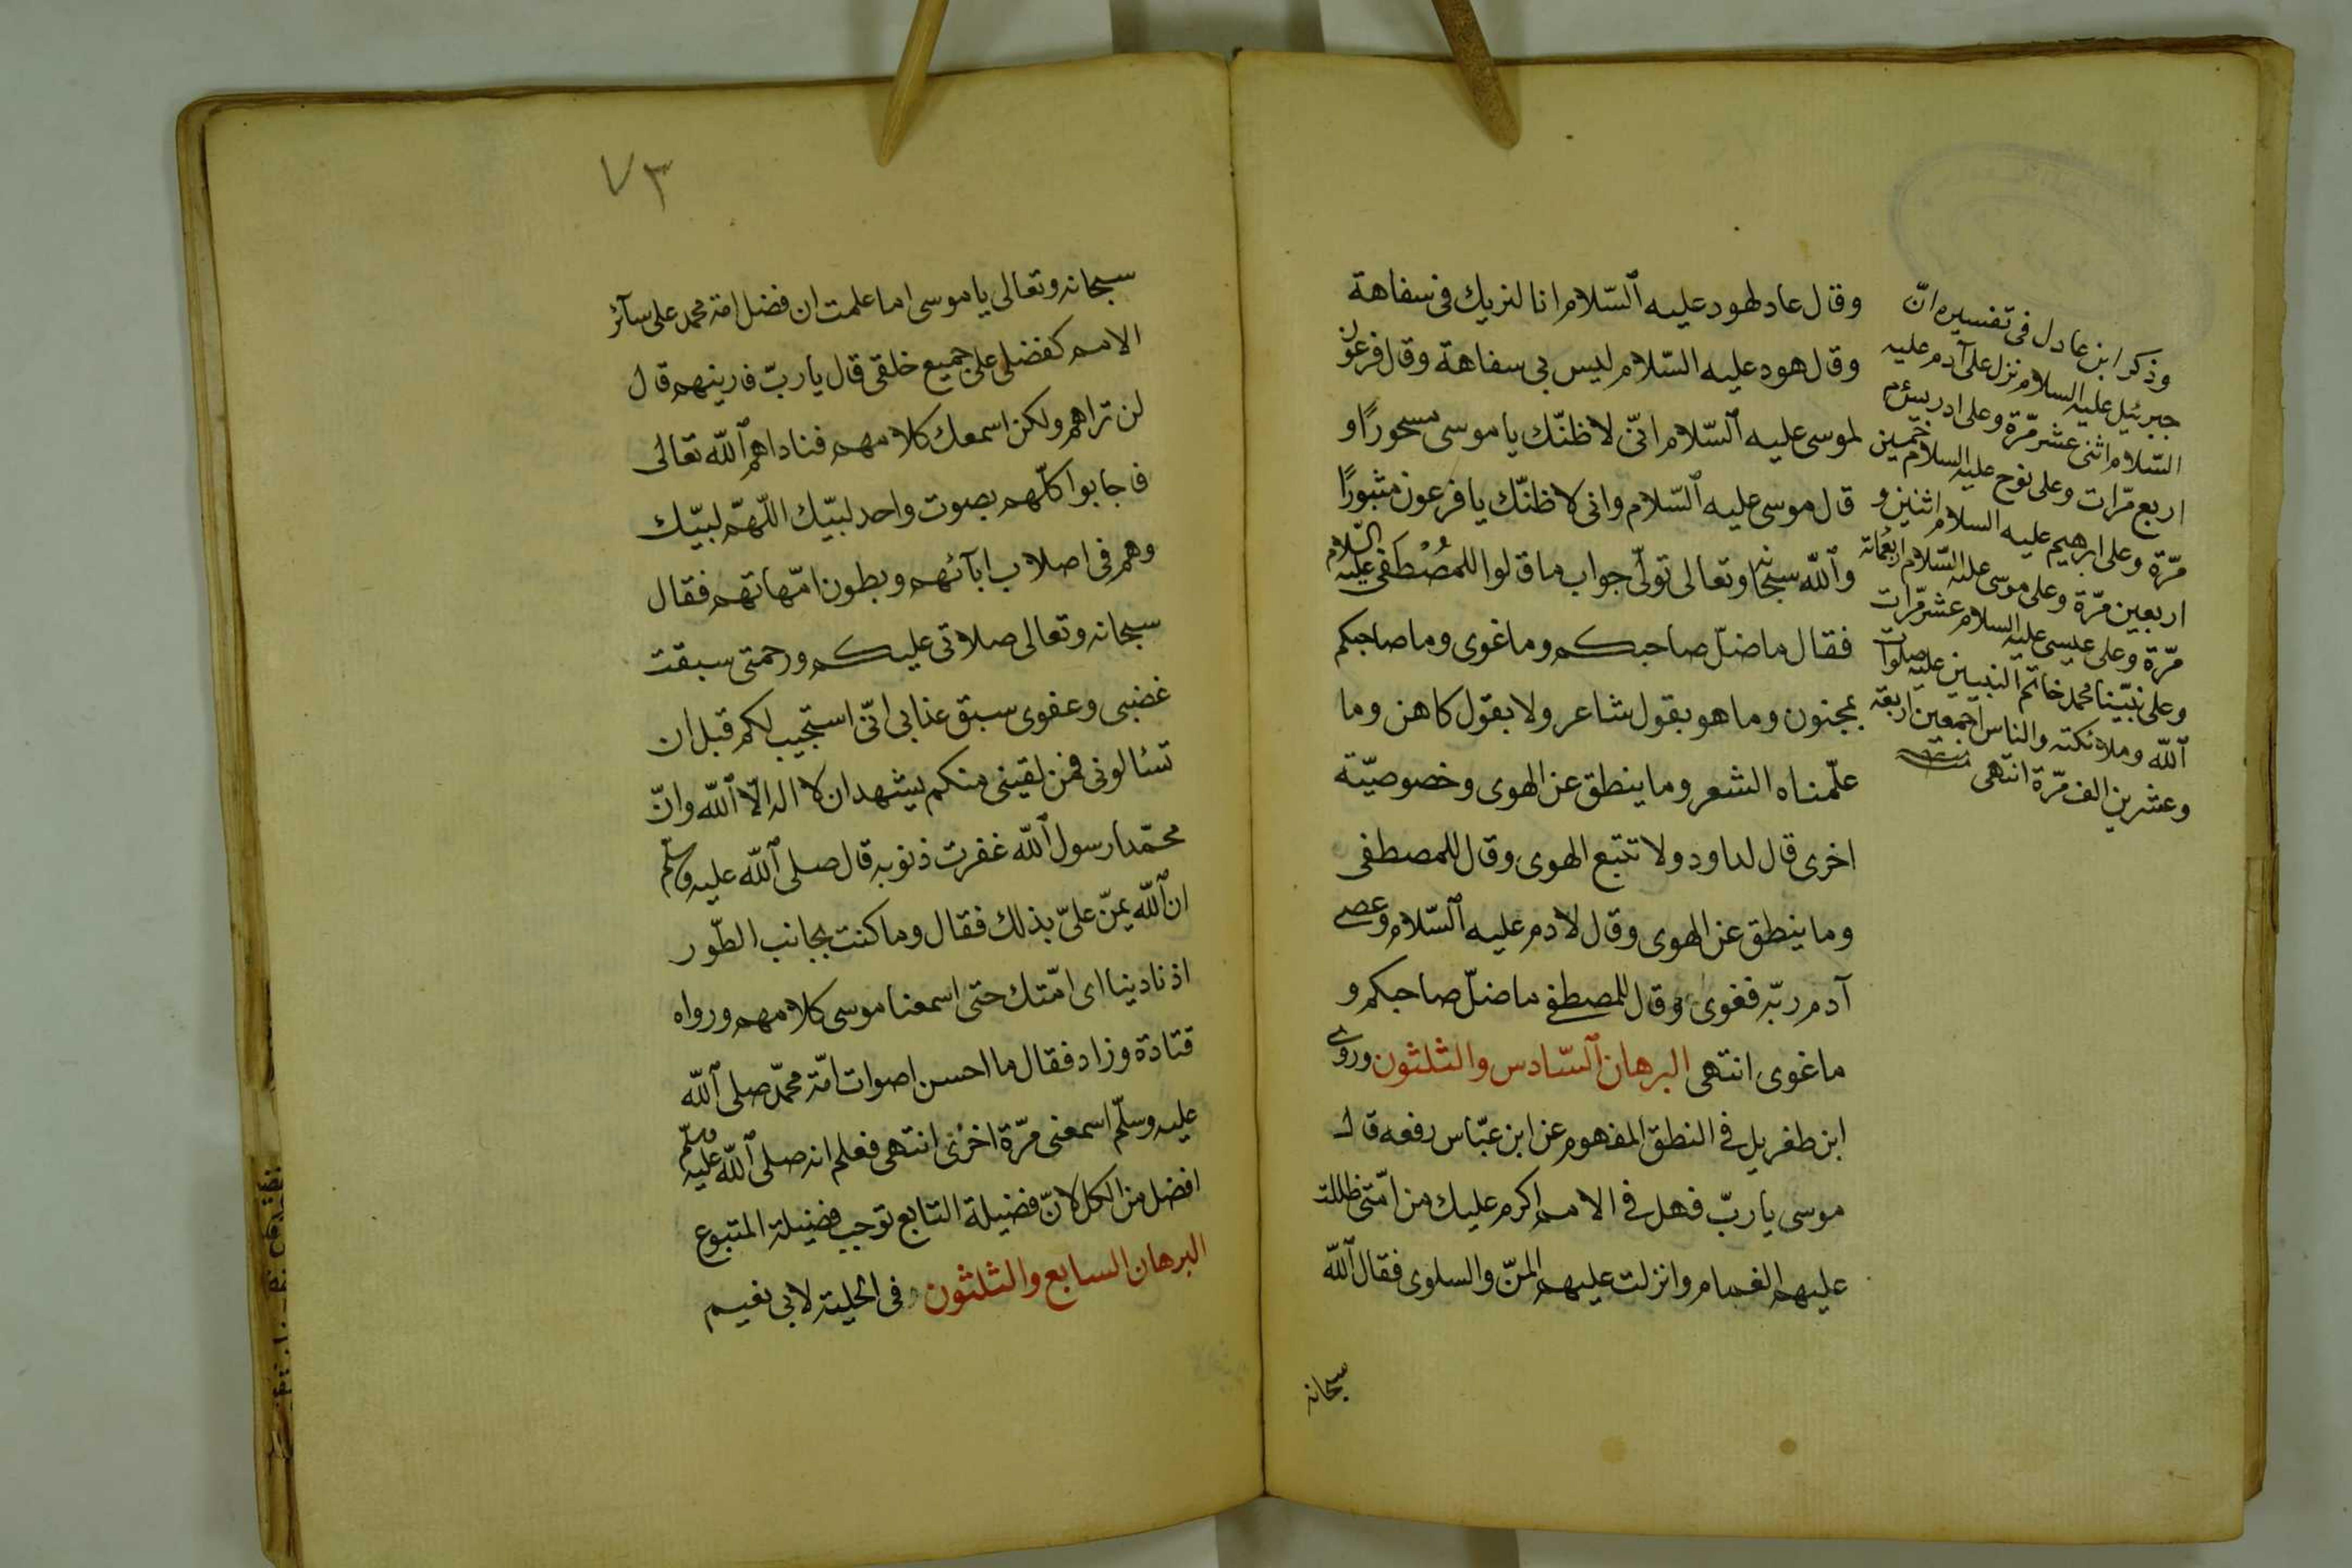 وقال عاد لهود عليه السّلام انا لنريك فى سفاهة
وقال هود عليه السّلام ليس بى سفاهة وقال فرعون
لموسى عليه السّلام انّى لاظنّك ياموسى مسحورًا و
قال موسى عليه السّلام وانى لاظنّك يا فرعون مثبورًا
والله سبحانه وتعالى تولّى جواب ما قالوا للمصطفى عليه السّلام
فقال ماضلّ صاحبكم وماغوى وما صاحبكم
بمجنون وما هو بقول شاعر ولا بقول كاهن وما
علّمناه الشعر وما ينطق عن الهوى وخصوصيّة
اخرى قال لداود ولا تتبع الهوى وقال للمصطفى
وما ينطق عن الهوى وقال لادم عليه السّلام وعصى
آدم ربّه فغوى وقال للمصطفى ماضلّ صاحبكم و
ماغوى انتهى البرهان السّادس والثلثون وروى
ابن طغربل فى النطق المفهوم عن ابن عبّاس رفعه قال
موسى يا ربّ فهل فى الامم اكرم عليك من امّتى ظللت
عليهم الغمام وانزلت عليهم المنّ والسلوى فقال الله
سبحانه
وذكر ابن عادل فى تفسيره انّ
جبرئيل عليه السلام نزل على آدم عليه
السّلام اثنى عشر مرّة وعلى ادريس
اربع مرّات وعلى نوح عليه السلام خمسين
مرّة وعلى ابرهيم عليه السلام اثنين و
اربعين مرّة وعلى موسى عليه السّلام اربعمائة
مرّة وعلى عيسى عليه السلام عشر مرّات
وعلى نبيّنا محمد خاتم النبيين عليه صلوات
الله وملائكته والناس اجمعين اربعة
وعشرين الف مرّة انتهى
٧٣
سبحانه وتعالى ياموسى اما علمت ان فضل امة محمد على سآئر
الامم كفضلى على جميع خلقى قال يا ربّ فارينهم قال
لن تراهم ولكن اسمعك كلامهم فناداهم الله تعالى
فاجابوا كلّهم بصوت واحد لبيّك اللّهمّ لبيّك
وهم فى اصلاب ابآئهم وبطون امّهاتهم فقال
سبحانه وتعالى صلاتى عليكم ورحمتى سبقت
غضبى وعفوى سبق عذابى انّى استجيب لكم قبل ان
تسئالونى فمن لقينى منكم يشهد ان لا اله الّا الله وانّ
محمّدا رسول الله غفرت ذنوبه قال صلى الله عليه وسلم
ان الله يمنّ علىّ بذلك فقال وما كنت بجانب الطّور
اذ نادينا اى امّتك حتى اسمعنا موسى كلامهم ورواه
قتادة وزاد فقال ما احسن اصوات امّة محمّد صلى الله
عليه وسلّم اسمعنى مرّة اخرى انتهى فعلم انه صلى الله عليه وسلّم
افضل من الكل لانّ فضيلة التابع توجب فضيلة المتبوع
البرهان السابع والثلثون فى الحلية لابى نعيم